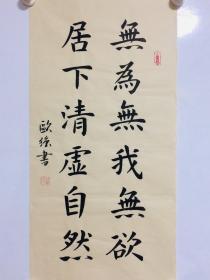 無為無我無欲
居下清虛自然
歐強書